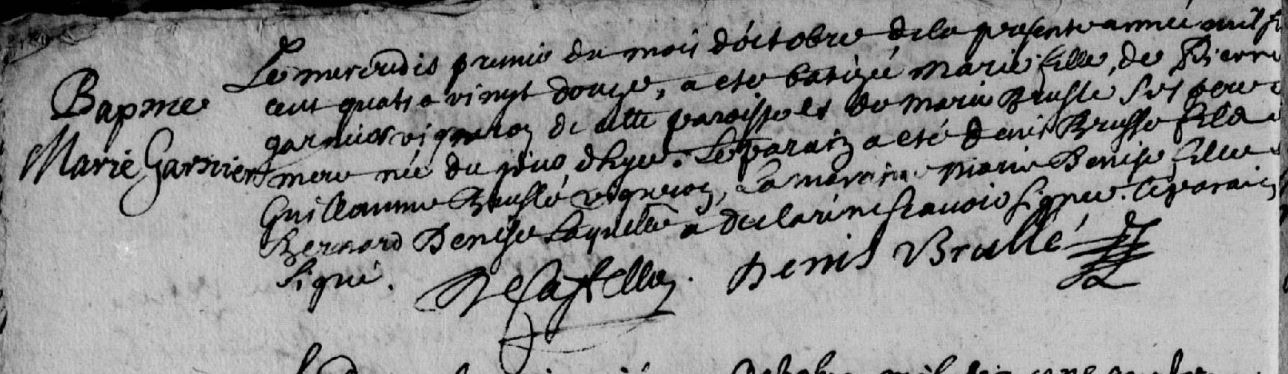 Bapme
Marie Garnier
Le mercredis premie du mois d'octobre de la presente année mil si
cent quatre vingt douze, a eté batizée Marie fille de Pierre
garnier vigneron de cette paroisse et de Marie Brusle ses pere
mere née du jour d'hyer. Le parain a eté denis Brusse fils
Guillaume Bruslé vigneron, La maraine marie Denise fille
Bernard Denise Laquelle a declaré ne scavoir signer. le parain
signé.
De Castellon Denis Brullé